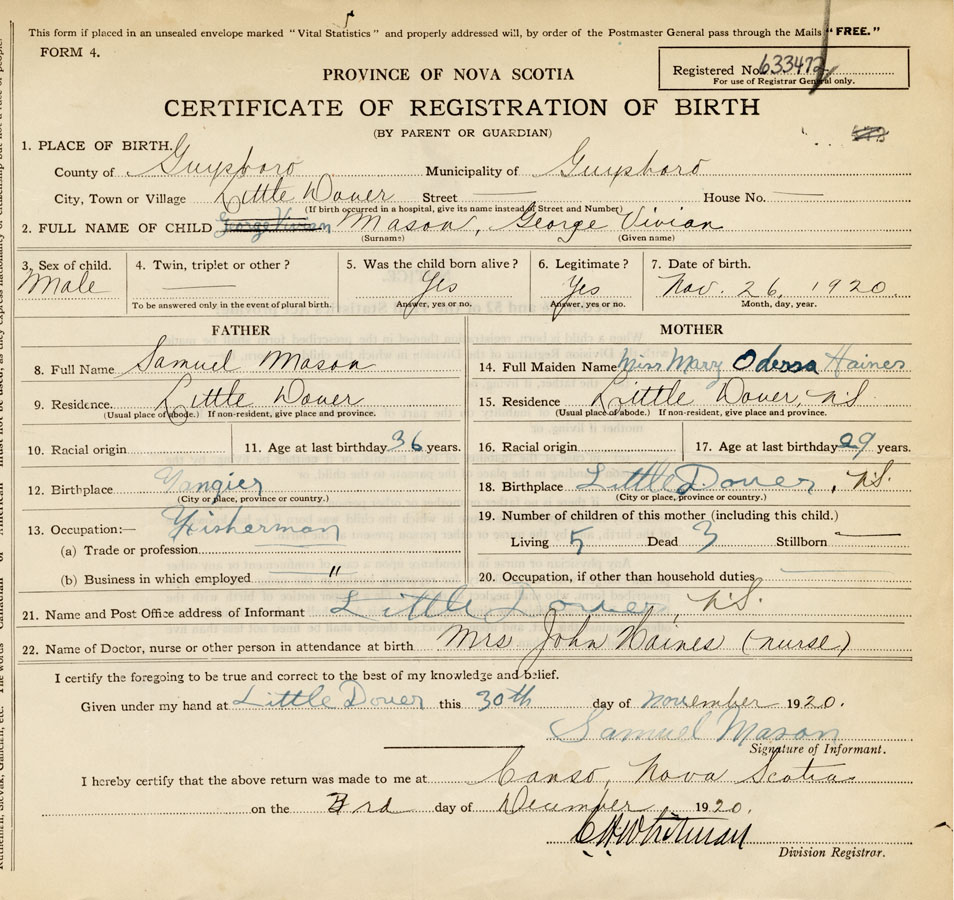 This form if placed in an unsealed envelope marked "Vital Statistics" and properly addressed will, by order of the Postmaster General pass through the Mails "FREE."
FORM 4.
Registered No. 633472
For use of Registrar General only.
PROVINCE OF NOVA SCOTIA
CERTIFICATE OF REGISTRATION OF BIRTH
(BY PARENT OR GUARDIAN)
1. PLACE OF BIRTH.
County of Guysboro Municipality of Guysboro
City, Town or Village Little Dover Street House No.
(If birth occurred in a hospital, give its name instead of Street and Number)
2. FULL NAME OF CHILD George Vivian Mason, George Vivian
(Surname) (Given name)
3. Sex of child. 4. Twin, triplet or other? 5. Was the child born alive? 6. Legitimate? 7. Date of birth.
Male Yes Yes Nov. 26, 1920
To be answered only in the event of plural birth. Answer, yes or no. Answer, yes or no. Month, day, year.
FATHER
8. Full Name Samuel Mason
9. Residence. Little Dover
(Usual place of abode.) If non-resident, give place and province.
10. Racial origin 11. Age at last birthday 36 years.
12. Birthplace Tangier
(City or place, province or country.)
13. Occupation:— Fisherman
(a) Trade or profession
(b) Business in which employed "
MOTHER
14. Full Maiden Name Miss Mary Odessa Haines
15. Residence Little Dover, N.S.
(Usual place of abode.) If non-resident, give place and province.
16. Racial origin 17. Age at last birthday 29 years.
18. Birthplace Little Dover, N.S.
(City or place, province or country.)
19. Number of children of this mother (including this child.)
Living 5 Dead 3 Stillborn
20. Occupation, if other than household duties
21. Name and Post Office address of Informant Little Dover, N.S.
22. Name of Doctor, nurse or other person in attendance at birth Mrs John Haines (nurse)
I certify the foregoing to be true and correct to the best of my knowledge and belief.
Given under my hand at Little Dover this 30th day of November 1920.
Samuel Mason
Signature of Informant.
I hereby certify that the above return was made to me at Canso, Nova Scotia
on the 3rd day of December, 1920.
Whitman
Division Registrar.